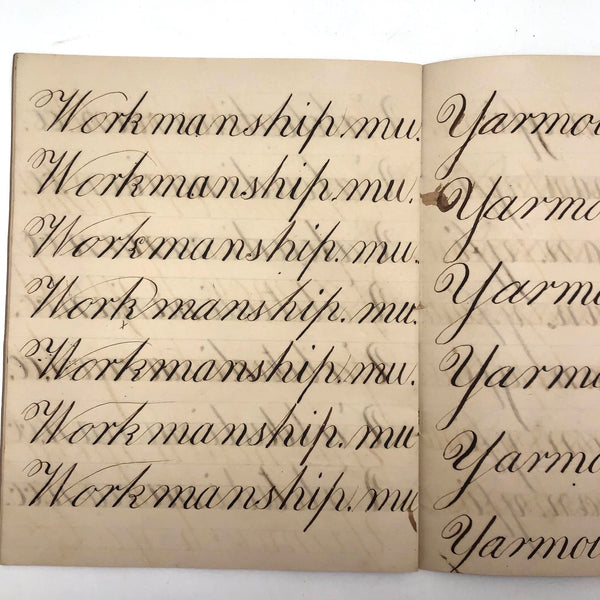 Workmanship. mu.
Workmanship. mu.
Workmanship. mu.
Workmanship. mu.
Workmanship. mu.
Workmanship. mu
Workmanship. mu
Yarmou
Yarmo
Yarmo
Yarmo
Yarmo
Yarmou